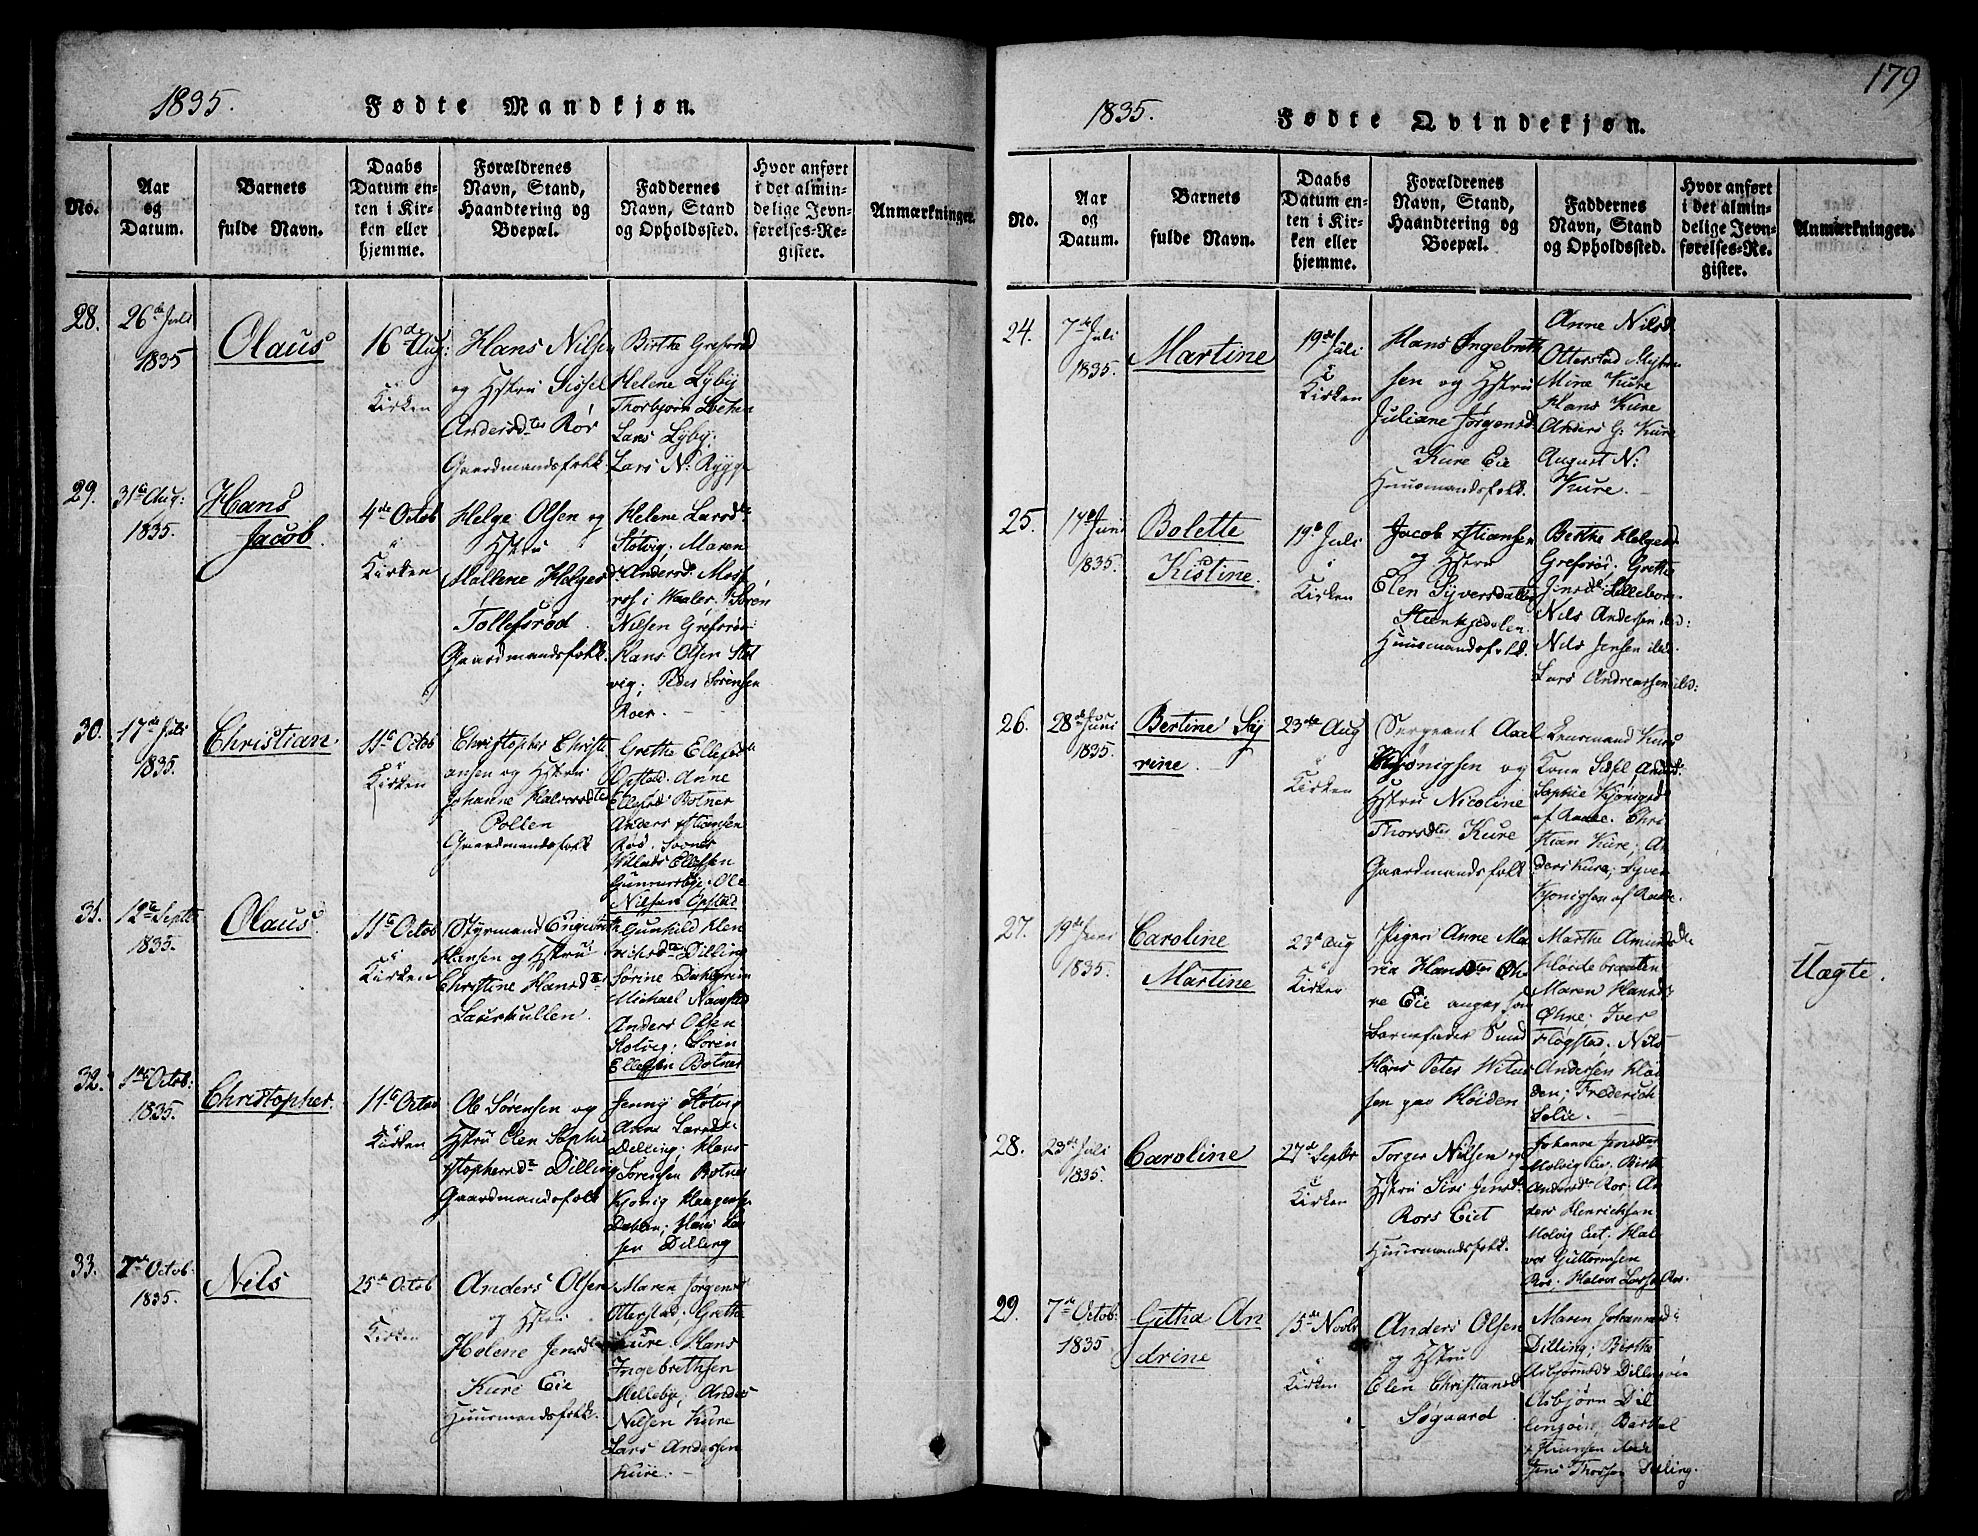 1835.
Fødte Mandkjøn.
No.
Aar
og
Datum.
Barnets
fulde Navn.
Daabs
Datum en-
ten i Kir-
ken eller
hjemme.
Forældrenes
Navn, Stand,
Haandtering og
Boepæl.
Faddernes
Navn, Stand
og Opholdssted.
Hvor anført
i det almin-
delige Jevn-
førelses-Re-
gister.
Anmærkninger.
28.
26de Juli
1835
Olaus
16de Aug:
i
Kirken
Hans Nilsen
og Hstru Sissel
Andersdtes Rør
Gaardmandsfolk
Birthe Grefsrød
Helene Lyby
Thorbjørn
Lars Lyby;
Lars N: Rygge
29.
31te Aug:
1835.
Hans
Jacob.
4de Octob
i
Kirken
Helge Olsen og
Hstru
Mallene Helgesd
Tollefsrød
Gaardmandsfolk.
Helene Larsdr
Stolvig; Maren
Andersd: Moss
i Waaler. Søren
Nilsen Grefsrød
Hans Olsen Stol
vig; Peder Sørensen
Roer. -
30.
17de Juli
1835.
Christian.
11te Octob
i
Kirken
Christopher Christi
ansen og Hstru
Johanne Halvorsdtes
Pollen
Gaardmandsfolk
Grethe Ellefsdr
Opstad. Anne
Ellefsd: Botner
Anders Xstiansen
Rød.
Ellefsen
Gunnersbye. Ole
Nilsen Opstad
31.
12te Septb
1835.
Olaus.
11te Octob
i
Kirken
Styrmand Engebreth
Hansen og Hstru
Christine Hansdtr
Laurkullen.
Gunhild Hen
richsdr Dilling
Sørine Dahlgreen
Michael Navestad
Anders Olsen
Stolvig; Søren
Ellefsen Botner
32.
1ste Octob:
1835.
Christopher.
11te Octob
i
Kirken
Ole Sørensen og
Hstru Elen Sophie
Xstophersdr Dilling
Gaardmandsfolk
Jenny Stolvig
Anne Larsdr
Dilling; Hans
Sørensen Botner
Haagense
Dahlen; Hans Lar
sen Dilling
33.
7de Octob.
1835.
Nils
25de Octob
i
Kirken
Anders Olsen
og Hstru
Helene Jensdtr
Kure Eie
Huusmandsfolk.
Maren Jørgensd
Otterstad; Grethe
Kure. Hans
Ingebrethsen
Melleby, Anders
Nilsen Kure
Lars Andersen
Kure. -
179
1835.
Fødte Qvindekjøn.
No.
Aar
og
Datum.
Barnets
fulde Navn.
Daabs
Datum en-
ten i Kir-
ken eller
hjemme.
Forældrenes
Navn, Stand,
Haandtering og
Boepæl.
Faddernes
Navn, Stand
og Opholdssted.
Hvor anført
i det almin-
delige Jevn-
førelses-Re-
gister.
Anmærkninger.
24.
7de Juli
1835.
Martine
19de Juli
i
Kirken
Hans Ingebreth
sen og Hstru
Juliane Jørgensd
Kure Eie
Huusmandsfolk.
Anne Nilsd.
Otterstad
Mine Kure
Hans Kure
Anders G: Kure
August N:
Kure. -
25.
17de Juni
1835.
Bolette
Kistine.
19de Juli
i
Kirken
Jacob Xstiansen
og Hstru
Elen Syversdatter
Steenkjedalen
Huusmandsfolk.
Birthe Helgesd
Grefsrød; Grethe
Jensdr Lillebor.
Nils Andersen ibd:
Nils Jensen ibd.
Lars Andreassen ibd:
26.
28de Juni
1835.
Bertine Sy
rine.
23de Aug
i
Kirken
Sergeant Axel
Kjønigsen og
Hstru Nicoline
Thorsdtes Kure
Gaardmandsfolk
Lensmand Kures
Kone Sissel Andersd.
Sophie Kjønigsd
af Raade. Chri
stian Kure; An
ders Kure; Syver
Kjønigsen af Raade.
27.
19de Juni
1835.
Caroline
Martine
23de Aug
i
Kirken
Pigen Anne Ma
ria Hansdtes Øh
re Eie angav som
Barnefader Smed
Hans Peter Witus
sen paa Høiden
Marthe Amundsdr
Høidebraaten
Maren Hansdr
Øhre. Iver
Fløgstad. Nils
Andersen Høi
den; Frederich
Solie. -
Uægte.
28.
23de Juli
1835.
Caroline
27de Septbr
i
Kirken
Torger Nilsen og
Hstru Siri Jensdr
Rørs Eiet
Huusmandsfolk.
Johanne Jensdatter
Molvig Eie. Birthe
Andersdr Rør. An
ders Henrichsen
Molvig Eiet. Hal
vor Guttormsen
Rør; Halvor Larsen Rør.
29.
7de Octob:
1835
Githa An
drine
15de Novbr
i
Kirken
Anders Olsen
og Hstru
Elen Christiansd
Søgaard
Maren Johannesdr
Dilling; Birthe
Asbjørnsdr Dillingøi
Asbjørn Dil
lingøi; Berthel
Xstiansen
Jens Thorsen Dilling.